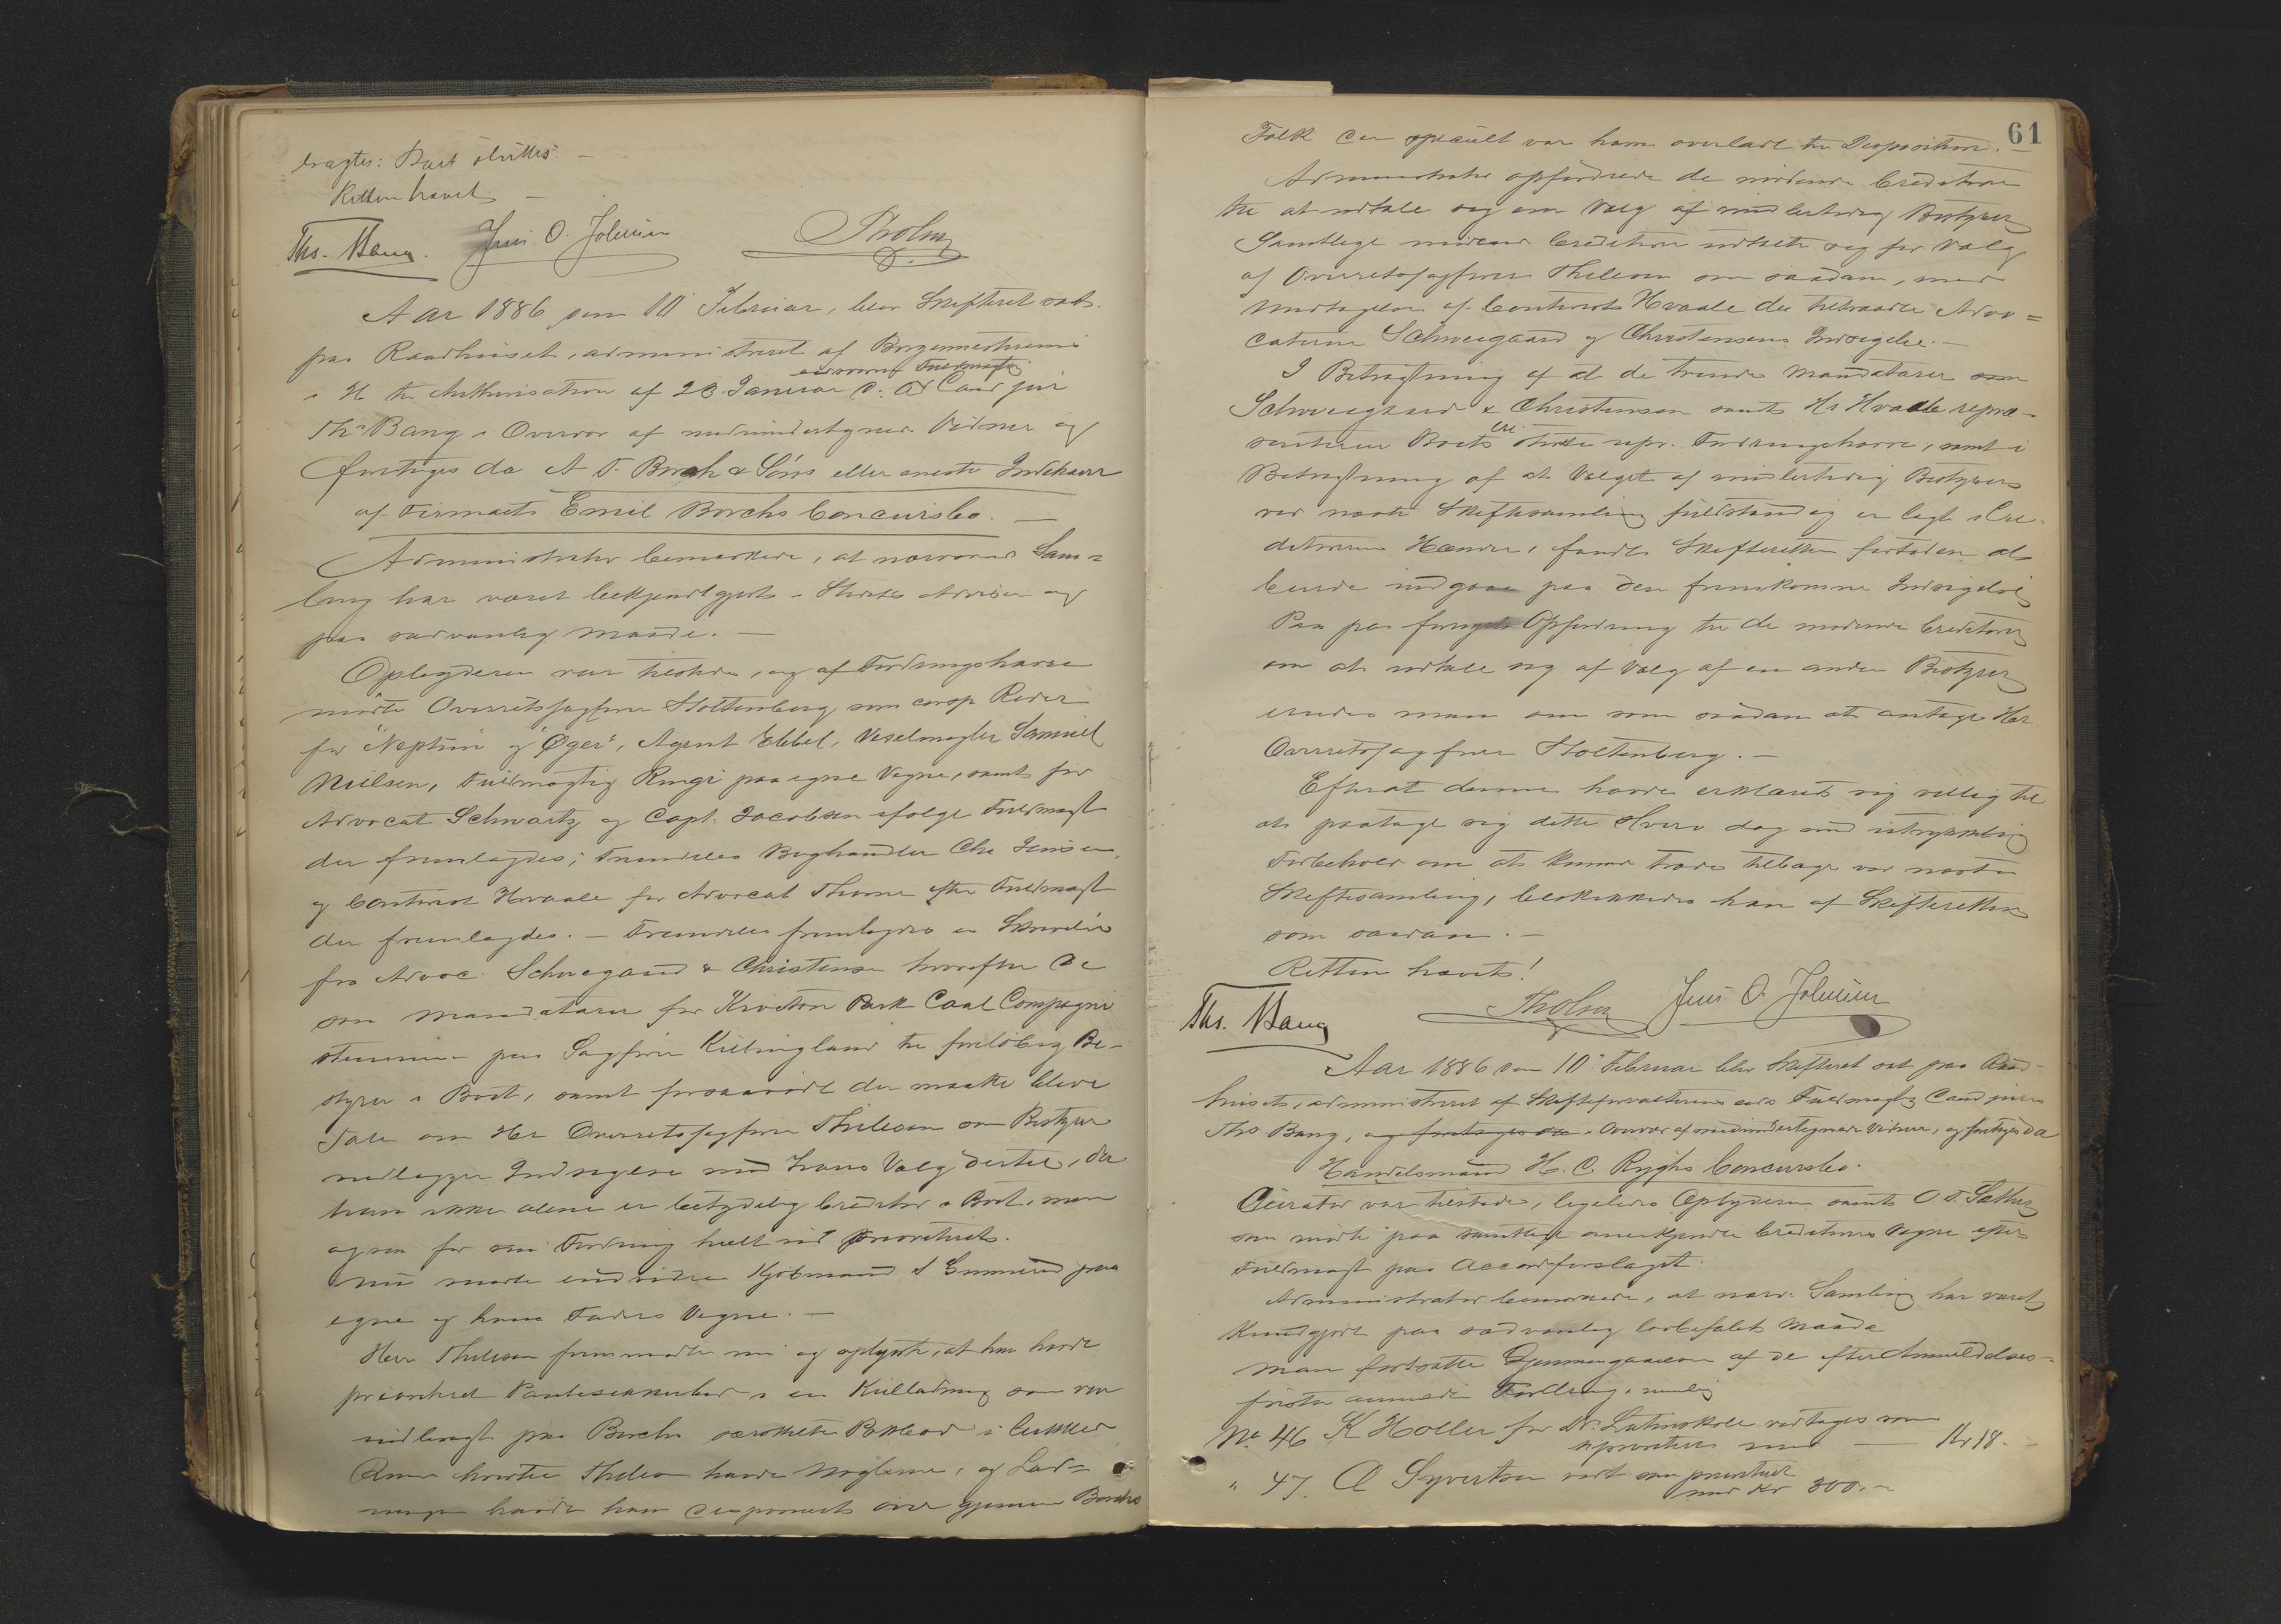 bragtes: Boet sluttes. —
Retten hævet —
Ths. Bang. Jens O. Johnsen Tholm
Aar 1886 den 10 Februar, blev Skifteret sat
paa Raadhuset, administreret af Borgermesterens
i H. til Authorisation af 28 Januar d. A. Cand jur
edsvorne Fuldmægtig
Ths Bang i Overvær af medundertegnede Vidner og
foretages da A. T. Borch & Søns eller eneste Indehaver
af Firmaets Emil Borchs Concursbo. —
Administrator bemærkede, at nærværende Sam=
ling har været bekjendtgjort i Stedets Aviser og
paa sædvanlig Maade. —
Opbyderen var tilstede, og af Fordringshavere
mødte Overretssagfører Stoltenberg som corresp Reder
for "Neptun" og "Øger", Agent Ebbel, Vexelmægler Samuel
Nielsen, Fuldmægtig Ringi paa egne Vegne, samt for
Advocat Schwartz og Capt. Jacobsen ifølge Fuldmagt
der fremlagdes; Fremdeles Boghandler Chr Jensen,
og Contorist Hvaale for Advocat Thome efter Fuldmagt
der fremlagdes. — Fremdeles fremlagdes en Skrivelse
fra Advoc. Schweigaard & Christensen hvorefter de
som Mandatarer for Kiveton Park Coal Compagni
stemmer paa Sagfører Killingland til foreløbig Be-
styrer i Boet, samt forsaavidt der maatte blive
Tale om Hr Overretssagfører Thilesen som Bestyrer
nedlægger Indsigelse mod hans Valg dertil, da
han ikke alene er betydelig Creditor i Boet, men
ogsaa for sin Fordring helt ud prioriteret.
Nu mødte endvidere Kjøbmand S Gunnerud paa
egne og hans Faders Vegne. —
Herr Thilesen fremmødte nu og oplyste, at han havde
prioriteret Pantesikkerhed i en Kulladning som var
indbragt paa Borchs
havde Nøglerne, og Lad=
ningen havde han disponeret over gjennem Borchs
61
Folk der specielt var ham overladt til Disposition. —
Administrator opfordrede de mødende Creditorer
til at udtale sig om Valg af midlertidig Bestyrer
Samtlige mødende Creditorer udtalte sig for Valg
af Overretssagfører Thilesen som saadan, med
Undtagelse af Contorist Hvaale der tiltraadte Advo=
caterne Schweigaard og Christensens Indsigelse. —
I Betragtning af at de trende Mandatarer
Schweigaard & Christensen samt Hr Hvaale repræ-
senterer Boets største upr. Fordringshavere, samt i
Betragtning af at Valget af midlertidig Bestyrer
ved næste Skiftesamling fuldstændig er lagt i Cre-
ditorernes Hænder, fandt Skifteretten fortiden at
burde indgaae paa den fremkomne Indsigelse
Paa paa fornyet Opfordring til de mødende Creditorer
om at udtale sig af Valg af en anden Bestyrer
enedes man om som saadan at antage Hr.
Overretssagfører Stoltenberg. —
Efterat denne havde erklæret sig villig til
at paatage sig dette Hverv dog med udtrykkelig
Forbehold om at kunne træde tilbage ved næste
Skiftesamling, beskikkedes han af Skifteretten
som saadan. —
Retten hævet!
Ths. Bang Tholm Jens O. Johnsen
Aar 1886 den 10 Februar blev Skifteret sat paa Raad-
huset, administreret af Skifteforvalterens eds Fuldmægtig Cand juris
Ths Bang, og foretages da i Overvær af medundertegnede Vidner, og foretages da
Handelsmand H. C. Ryghs Concursbo.
Curator var tilstede, ligeledes Opbyderen samt O. T. Sæther
som mødte paa samtlige anerkjendte Creditorers Vegne efter
Fuldmagt paa Accordforslaget.
Administrator bemærkede, at nærv. Samling har været
kundgjort paa sædvanlig lovbefalet Maade
Man fortsatte Gjennemgaaelsen af de efter Anmeldelses-
fristen anmeldte Fordring, nemlig
No 46 K Holler for Dr. Latinskole vedtages som
uprioriteret med — Kr 18. -
" 47. O Syvertsen vedt. som prioriteret
med Kr 300. -